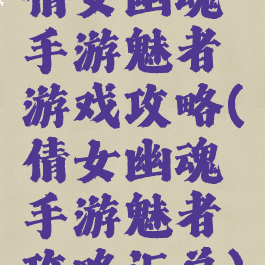 倩女幽魂
手游魅者
游戏攻略(
倩女幽魂
手游魅者
攻略汇总)